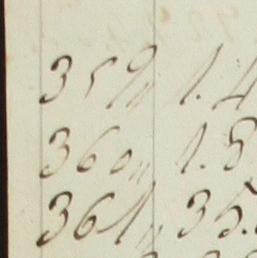 359〃 1.4
360〃 1.8
361〃 35.